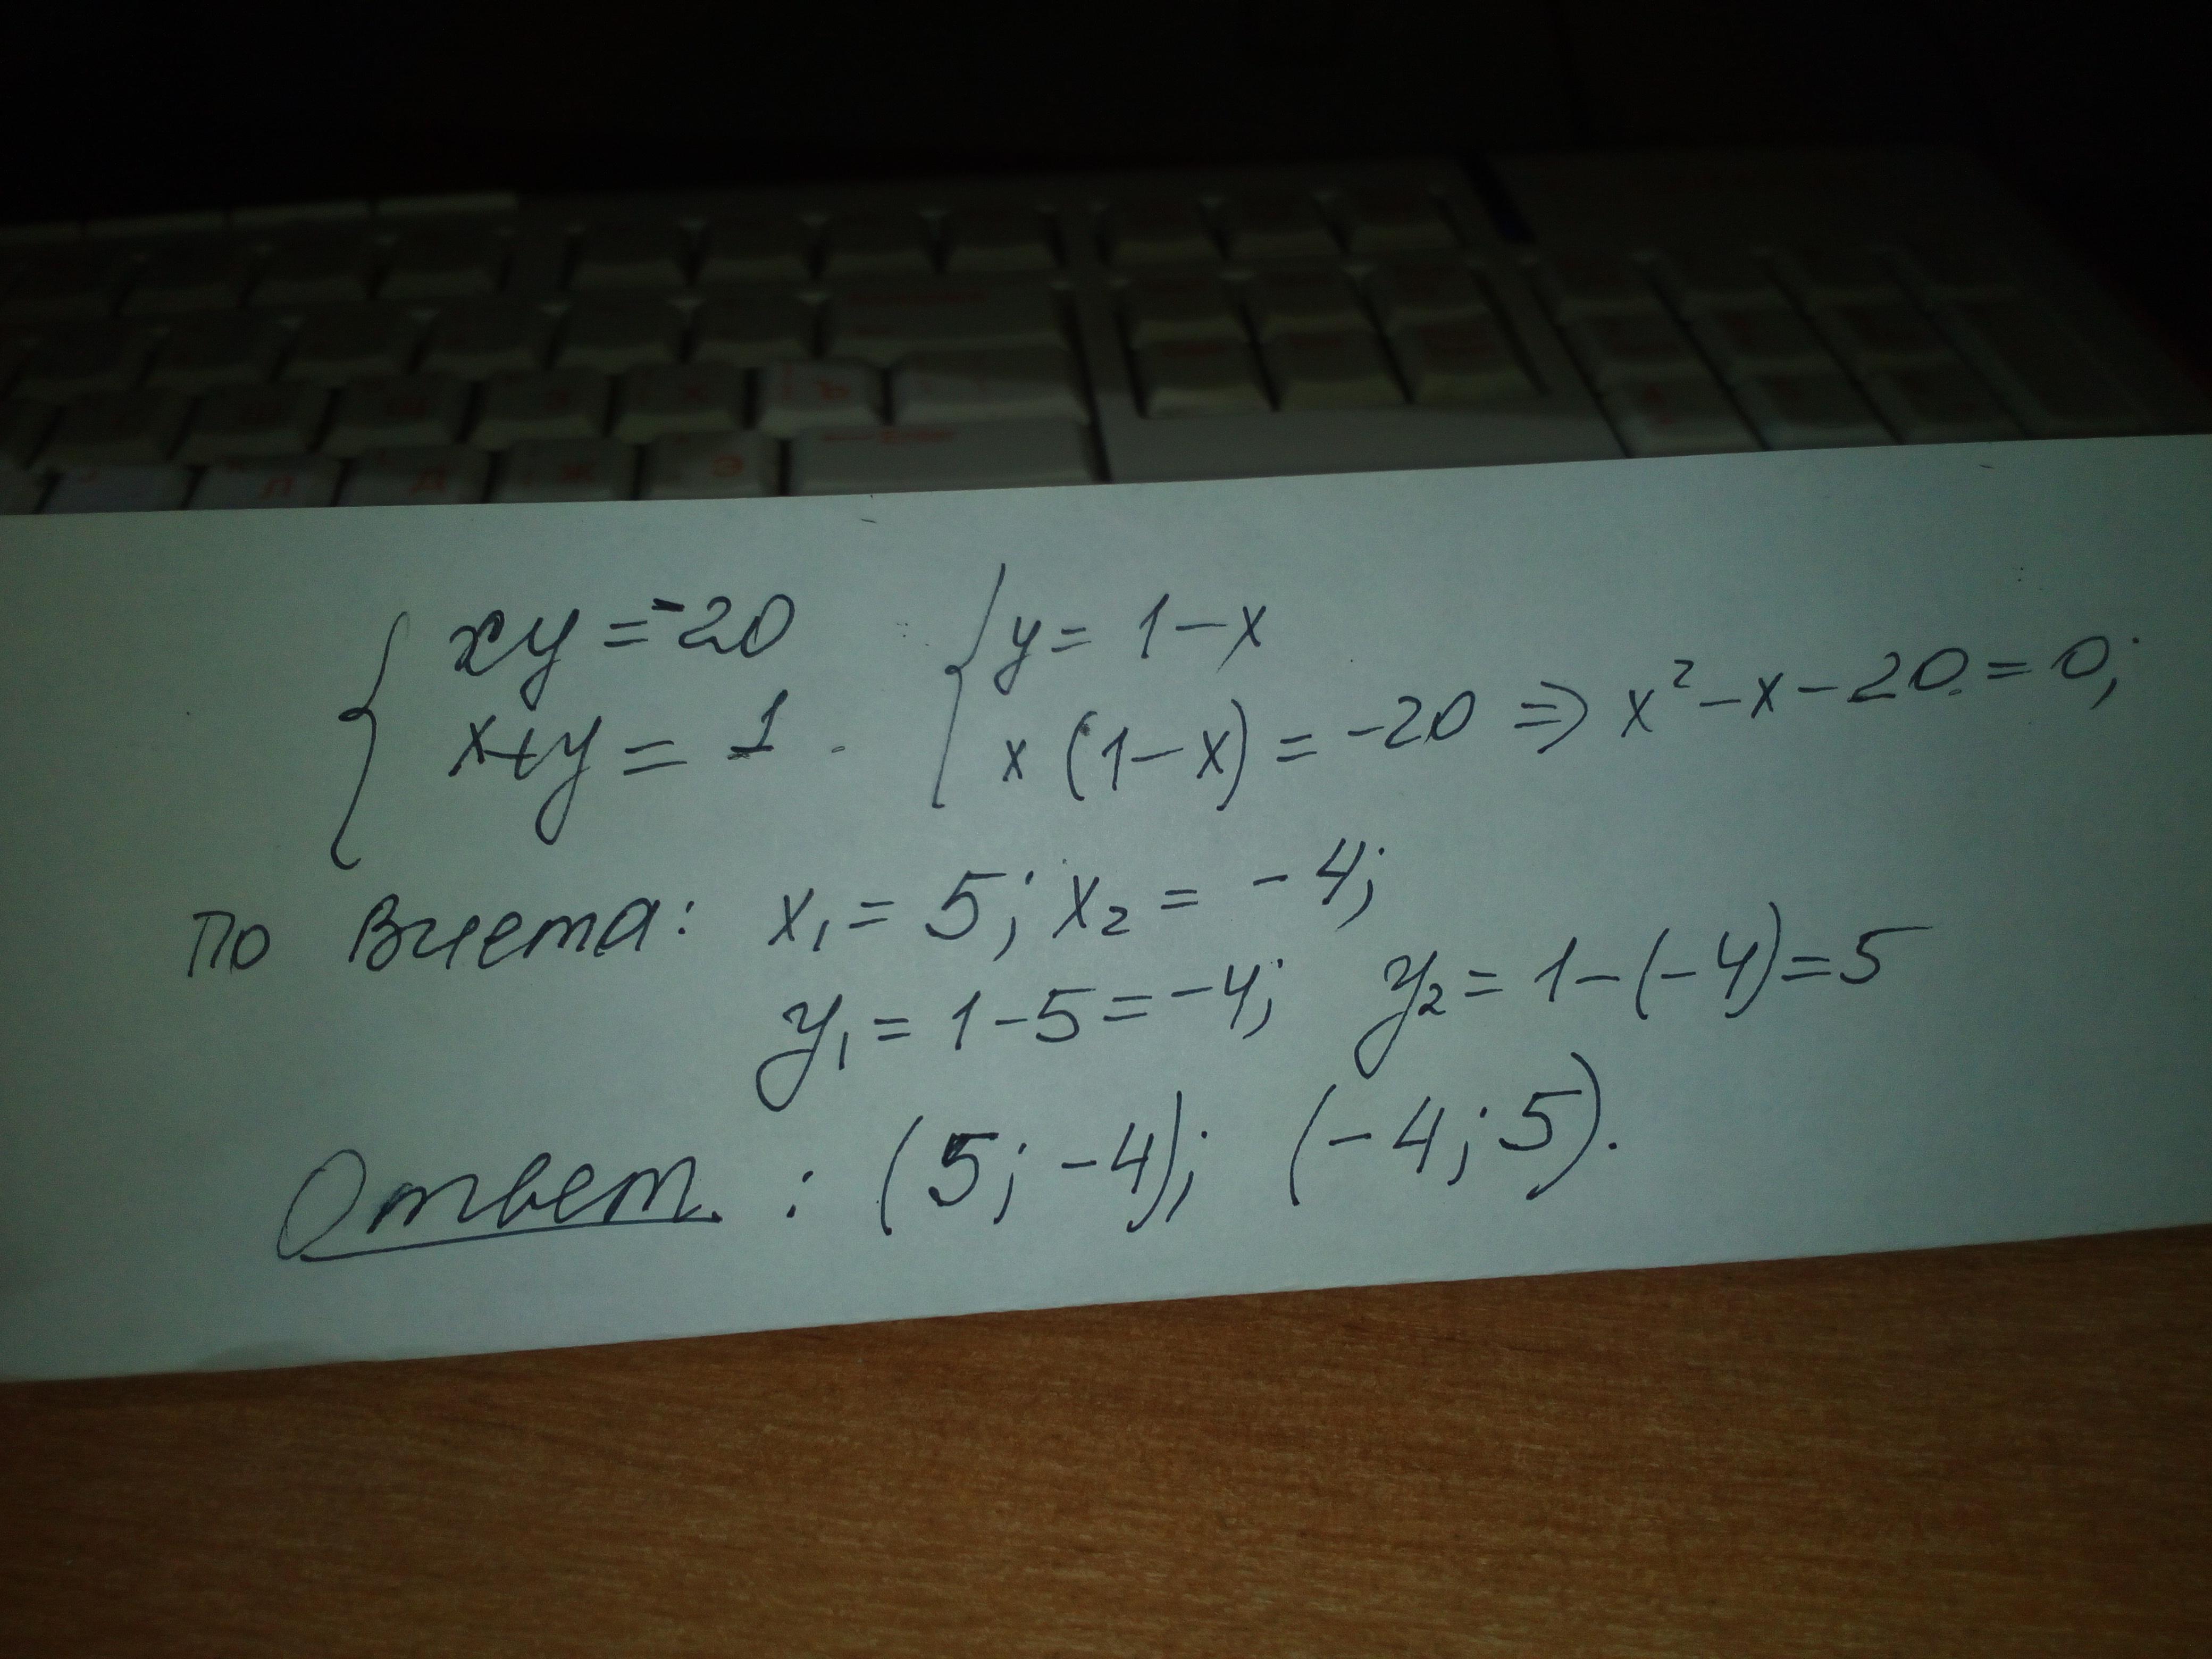 { xy = -20 { y = 1 - x
x+y = 1 x(1-x) = -20 ⇒ x² - x - 20 = 0;
по Виета: x₁ = 5; x₂ = -4;
y₁ = 1 - 5 = -4; y₂ = 1 - (-4) = 5
Ответ. : (5; -4); (-4; 5).